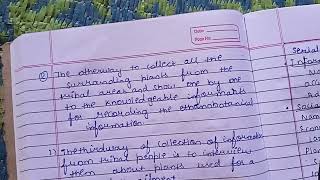 Date
Page No
② The otherway to collect all the
surranding plants from the
tribal areas and show one by one
to the knowledgeable informants
for recording the ethnobotanical
information.
1) The thirdway of collection of information
from tribal people is to interview
them about plants used for a
Serial
Infor